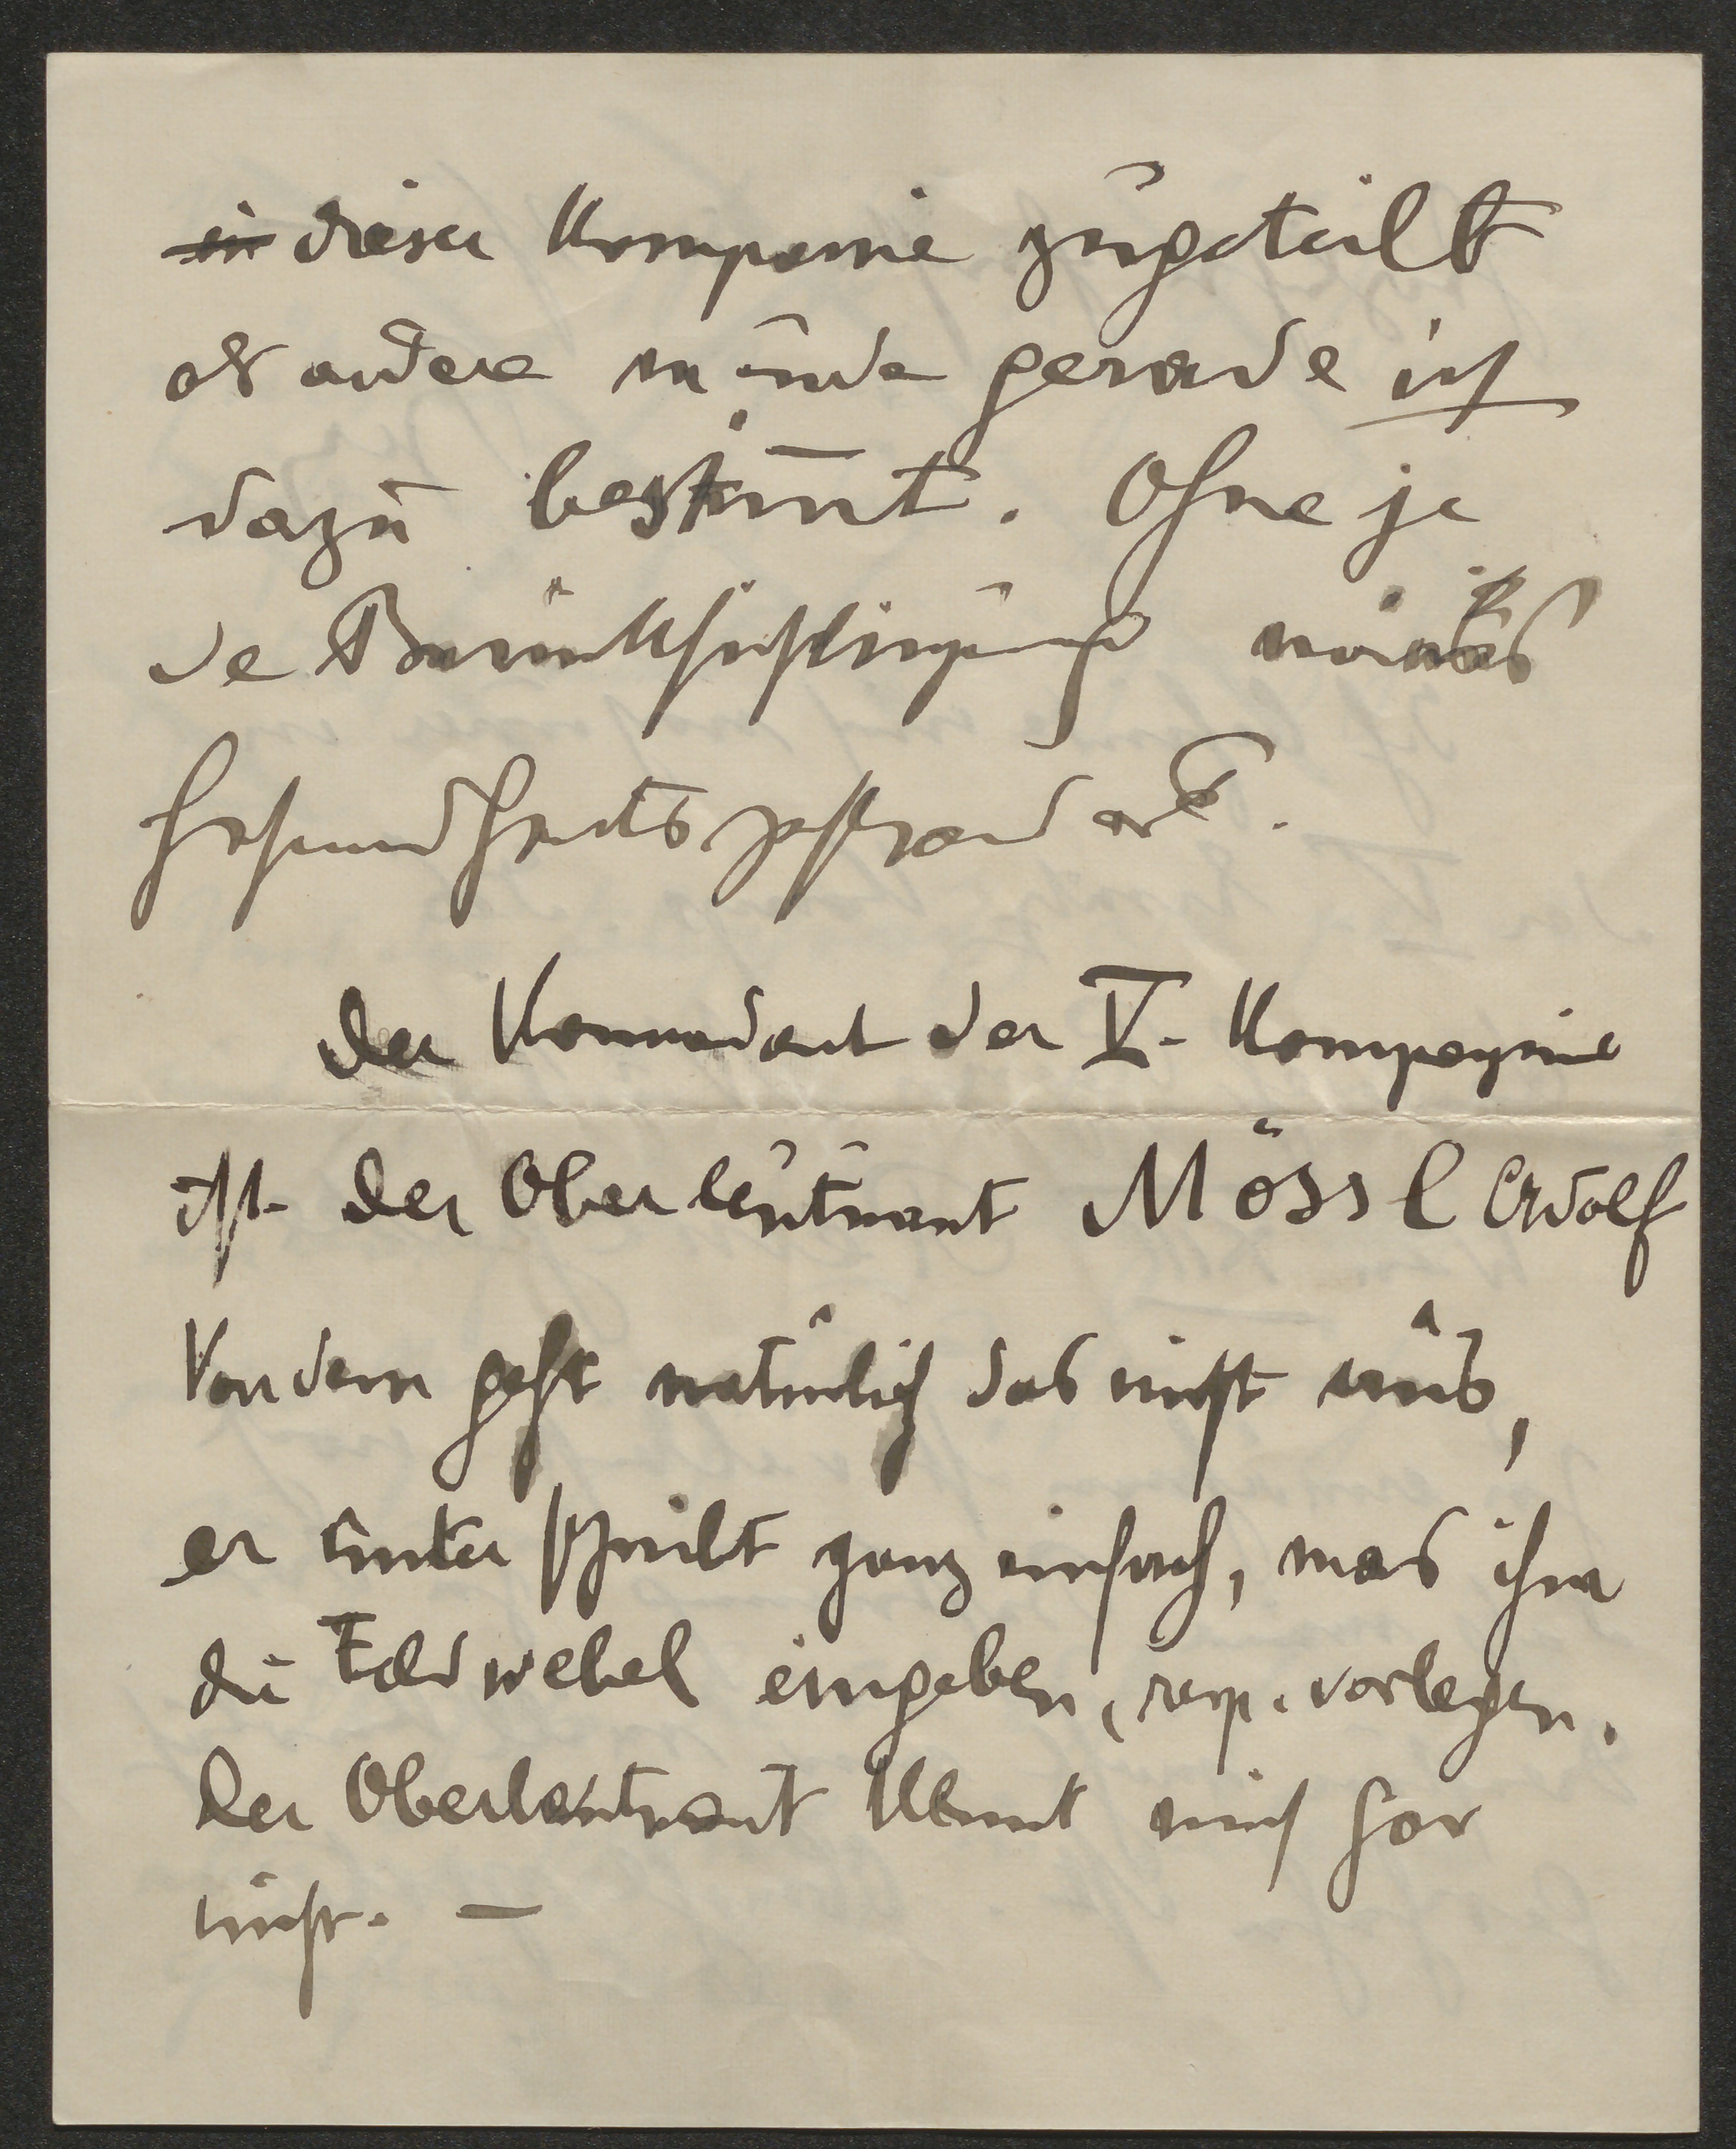 in dieser Kompanie zugeteilt
als andere wurde gerade ich
dazu bestim̄t. Ohne je
de Berücksichtigung meines
Gesundheitszustandes.
Der Kommadant der V. Kompagnie
ist der Oberleutnant Mössl Adolf
Von dem geht natürlich das nicht aus,
er unterschreibt ganz einfach, was ihm
die Feldwebel eingeben, resp. vorlegen.
Der Oberleutnant kennt mich gar
nicht. —